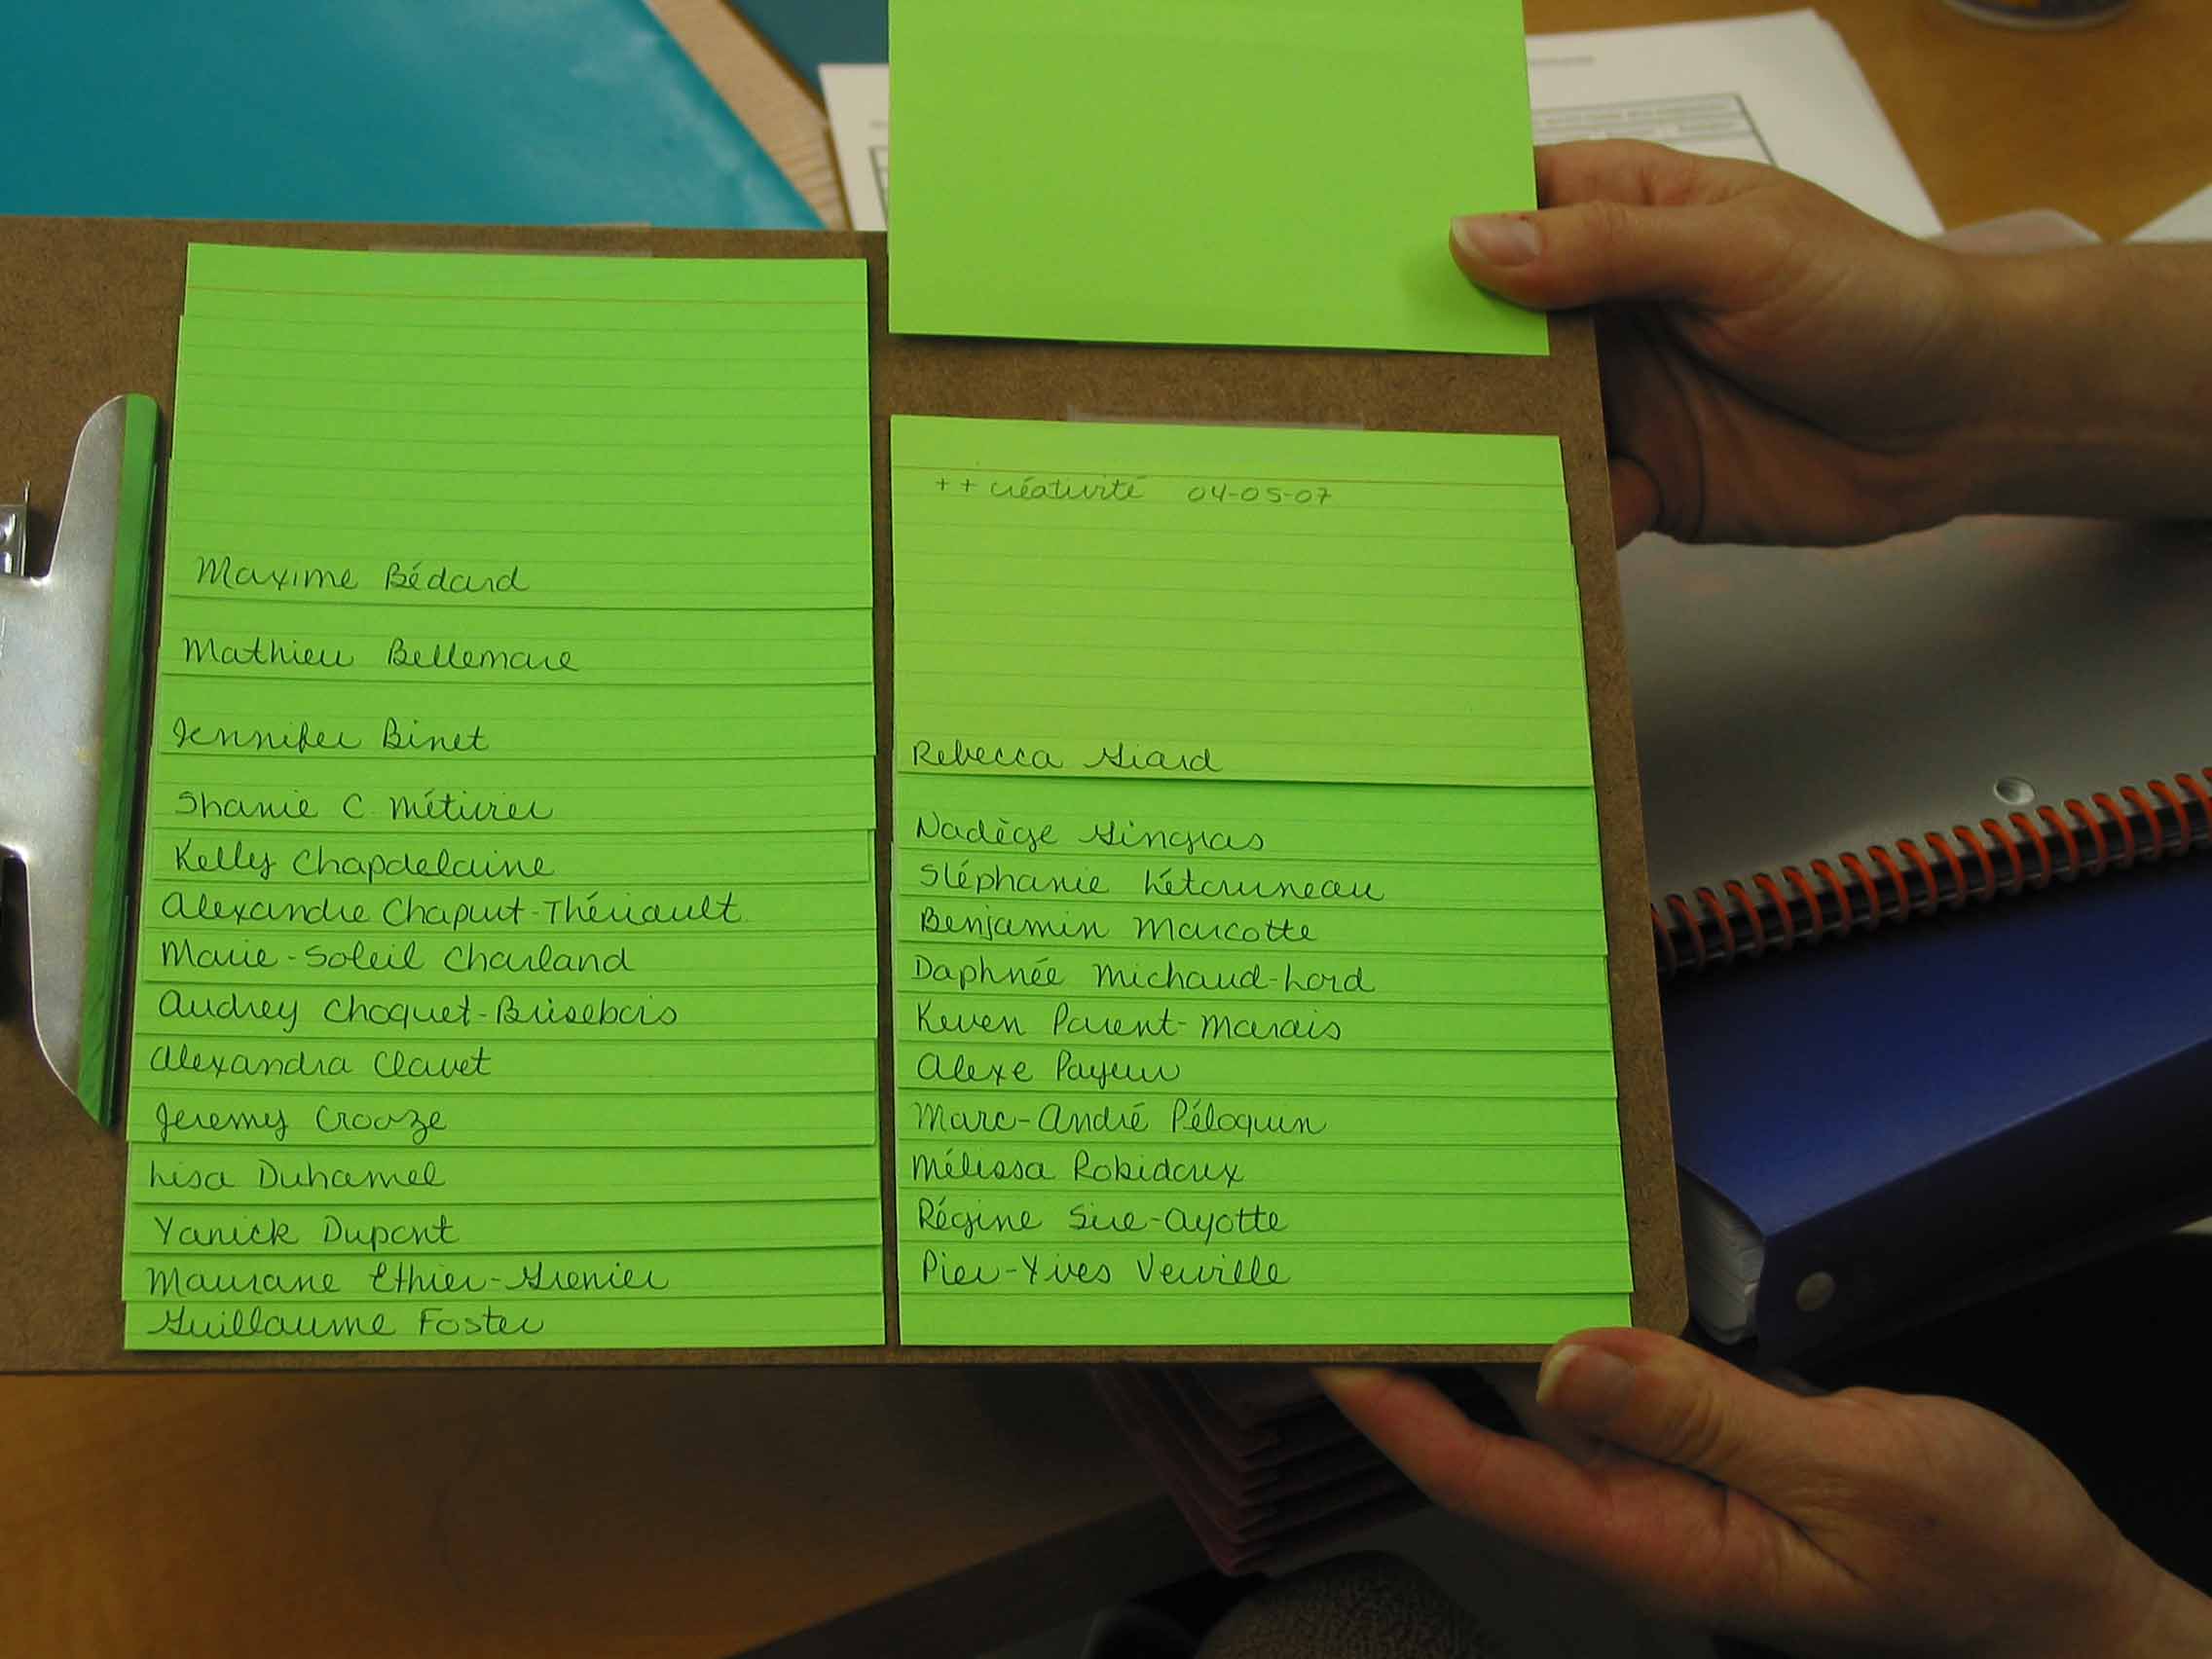 Maxime Bédard
Mathieu Bellemare
Jennifer Binet
Shanie C. Métivier
Kelly Chapdelaine
Alexandre Chaput-Thériault
Marie-Soleil Charland
Audrey Choquet-Brisebois
Alexandra Clavet
Jeremy Croaze
Lisa Duhamel
Yanick Dupont
Maurane Ethier-Grenier
Guillaume Foster
++ créativité 04-05-07
Rebecca Giard
Nadège Gingras
Stéphanie Létourneau
Benjamin Marcotte
Daphnée Michaud-Lord
Keven Parent-Marais
Alexe Payeur
Marc-André Péloquin
Mélissa Robidoux
Régine Sire-Ayotte
Pier-Yves Verville